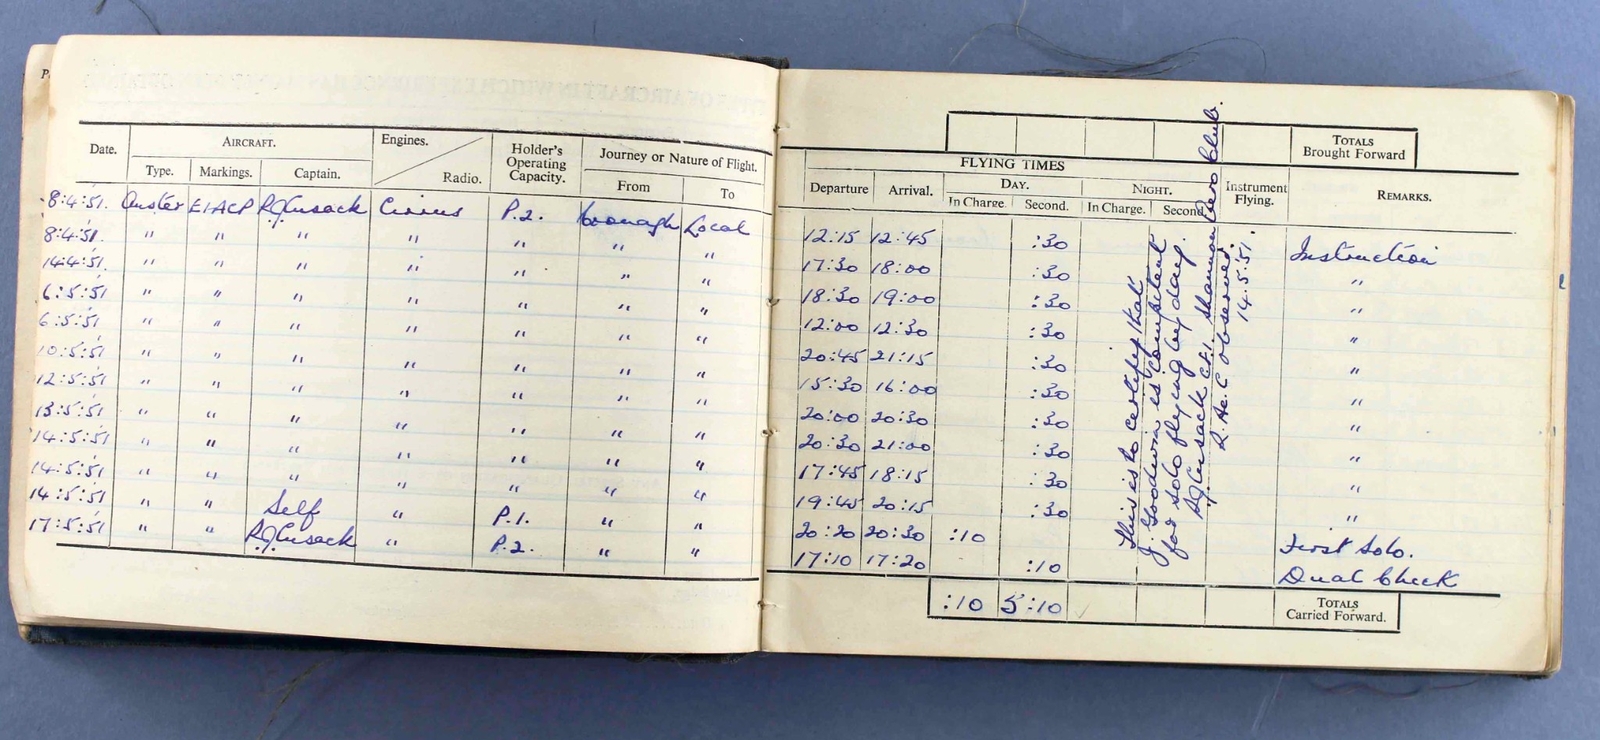 Date.
AIRCRAFT.
Engines.
Radio.
Holder's Operating Capacity.
Journey or Nature of Flight.
Type.
Markings.
Captain.
From
To
8:4:51. Auster EIACP R.J.Cusack Cirrus P.2. Coonagh Local
8:4:51. " " " " " " "
14:4:51 " " " " " " "
6:5:51 " " " " " " "
6:5:51 " " " " " " "
10:5:51 " " " " " " "
12:5:51 " " " " " " "
13:5:51 " " " " " " "
14:5:51 " " " " " " "
14:5:51 " " " " " " "
14:5:51 " " Self " P.1. " "
17:5:51 " " R.J.Cusack " P.2. " "
TOTALS
Brought Forward
FLYING TIMES
Departure
Arrival.
DAY.
NIGHT.
Instrument Flying.
REMARKS.
In Charge.
Second.
In Charge.
Second.
12:15 12:45 :30 Instruction
17:30 18:00 :30 "
18:30 19:00 :30 "
12:00 12:30 :30 "
20:45 21:15 :30 "
15:30 16:00 :30 "
20:00 20:30 :30 "
20:30 21:00 :30 "
17:45 18:15 :30 "
19:45 20:15 :30 "
20:20 20:30 :10 First Solo.
17:10 17:20 :10 Dual Check
This is to certify that
J. Goodwin is competent
for solo flying by day.
R.J. Cusack C.F.I. Shannon Aero Club.
R. Ae. C observed.
14.5.51.
:10 5:10
TOTALS
Carried Forward.